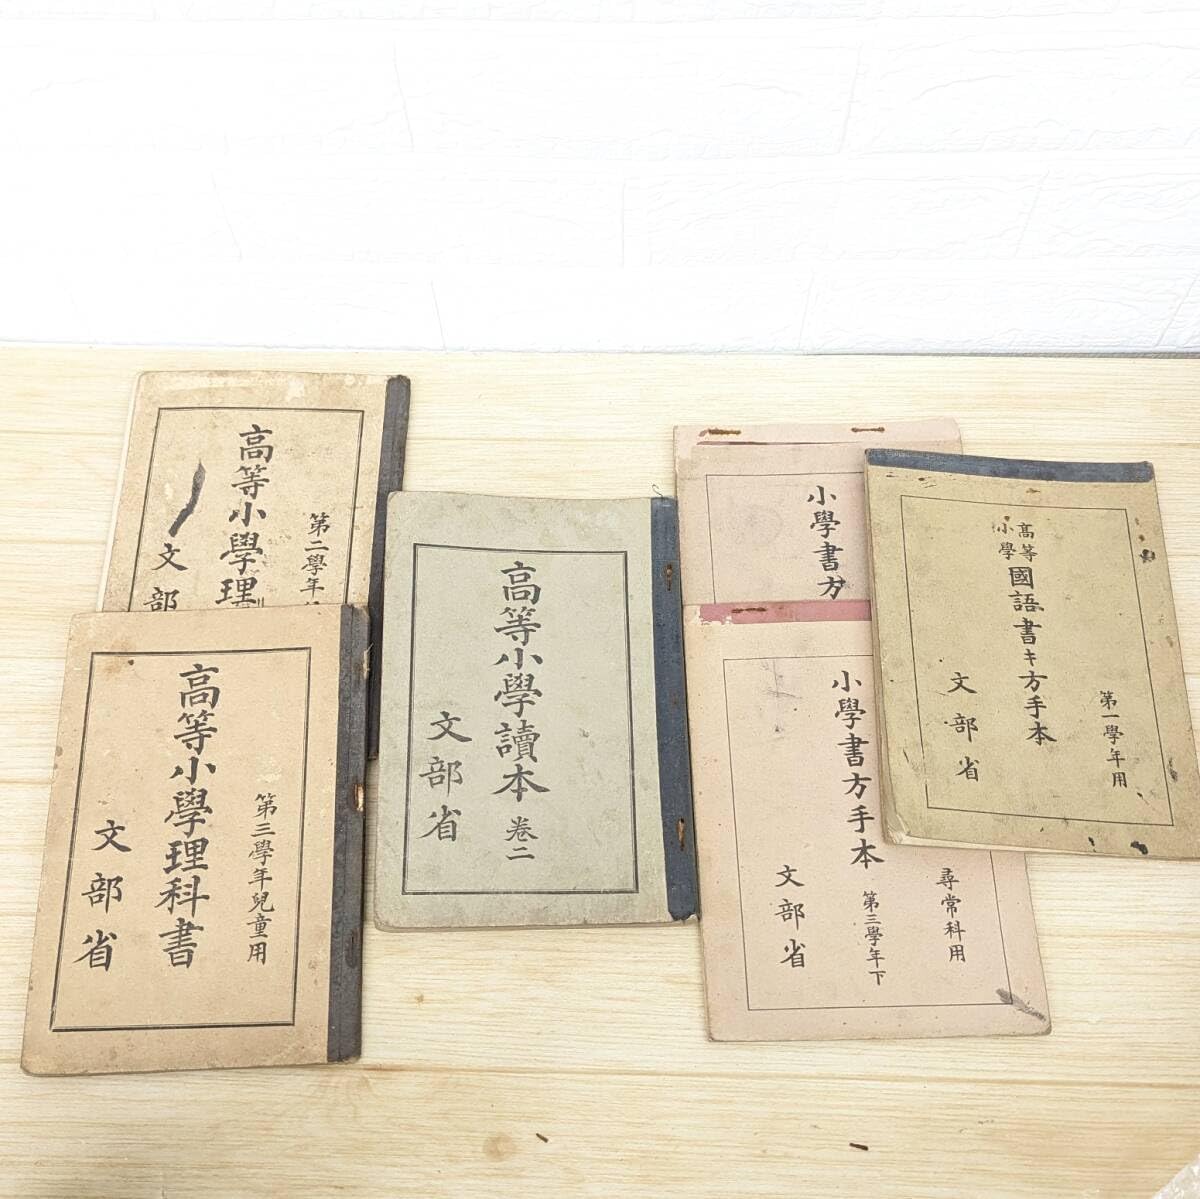 高等小學理
第二學年
文部
高等小學理科書
第三學年兒童用
文部省
高等小學讀本 卷二
文部省
小學書方
小學書方手本 第三學年下
尋常科用
文部省
高等小學 國語書キ方手本
第一學年用
文部省